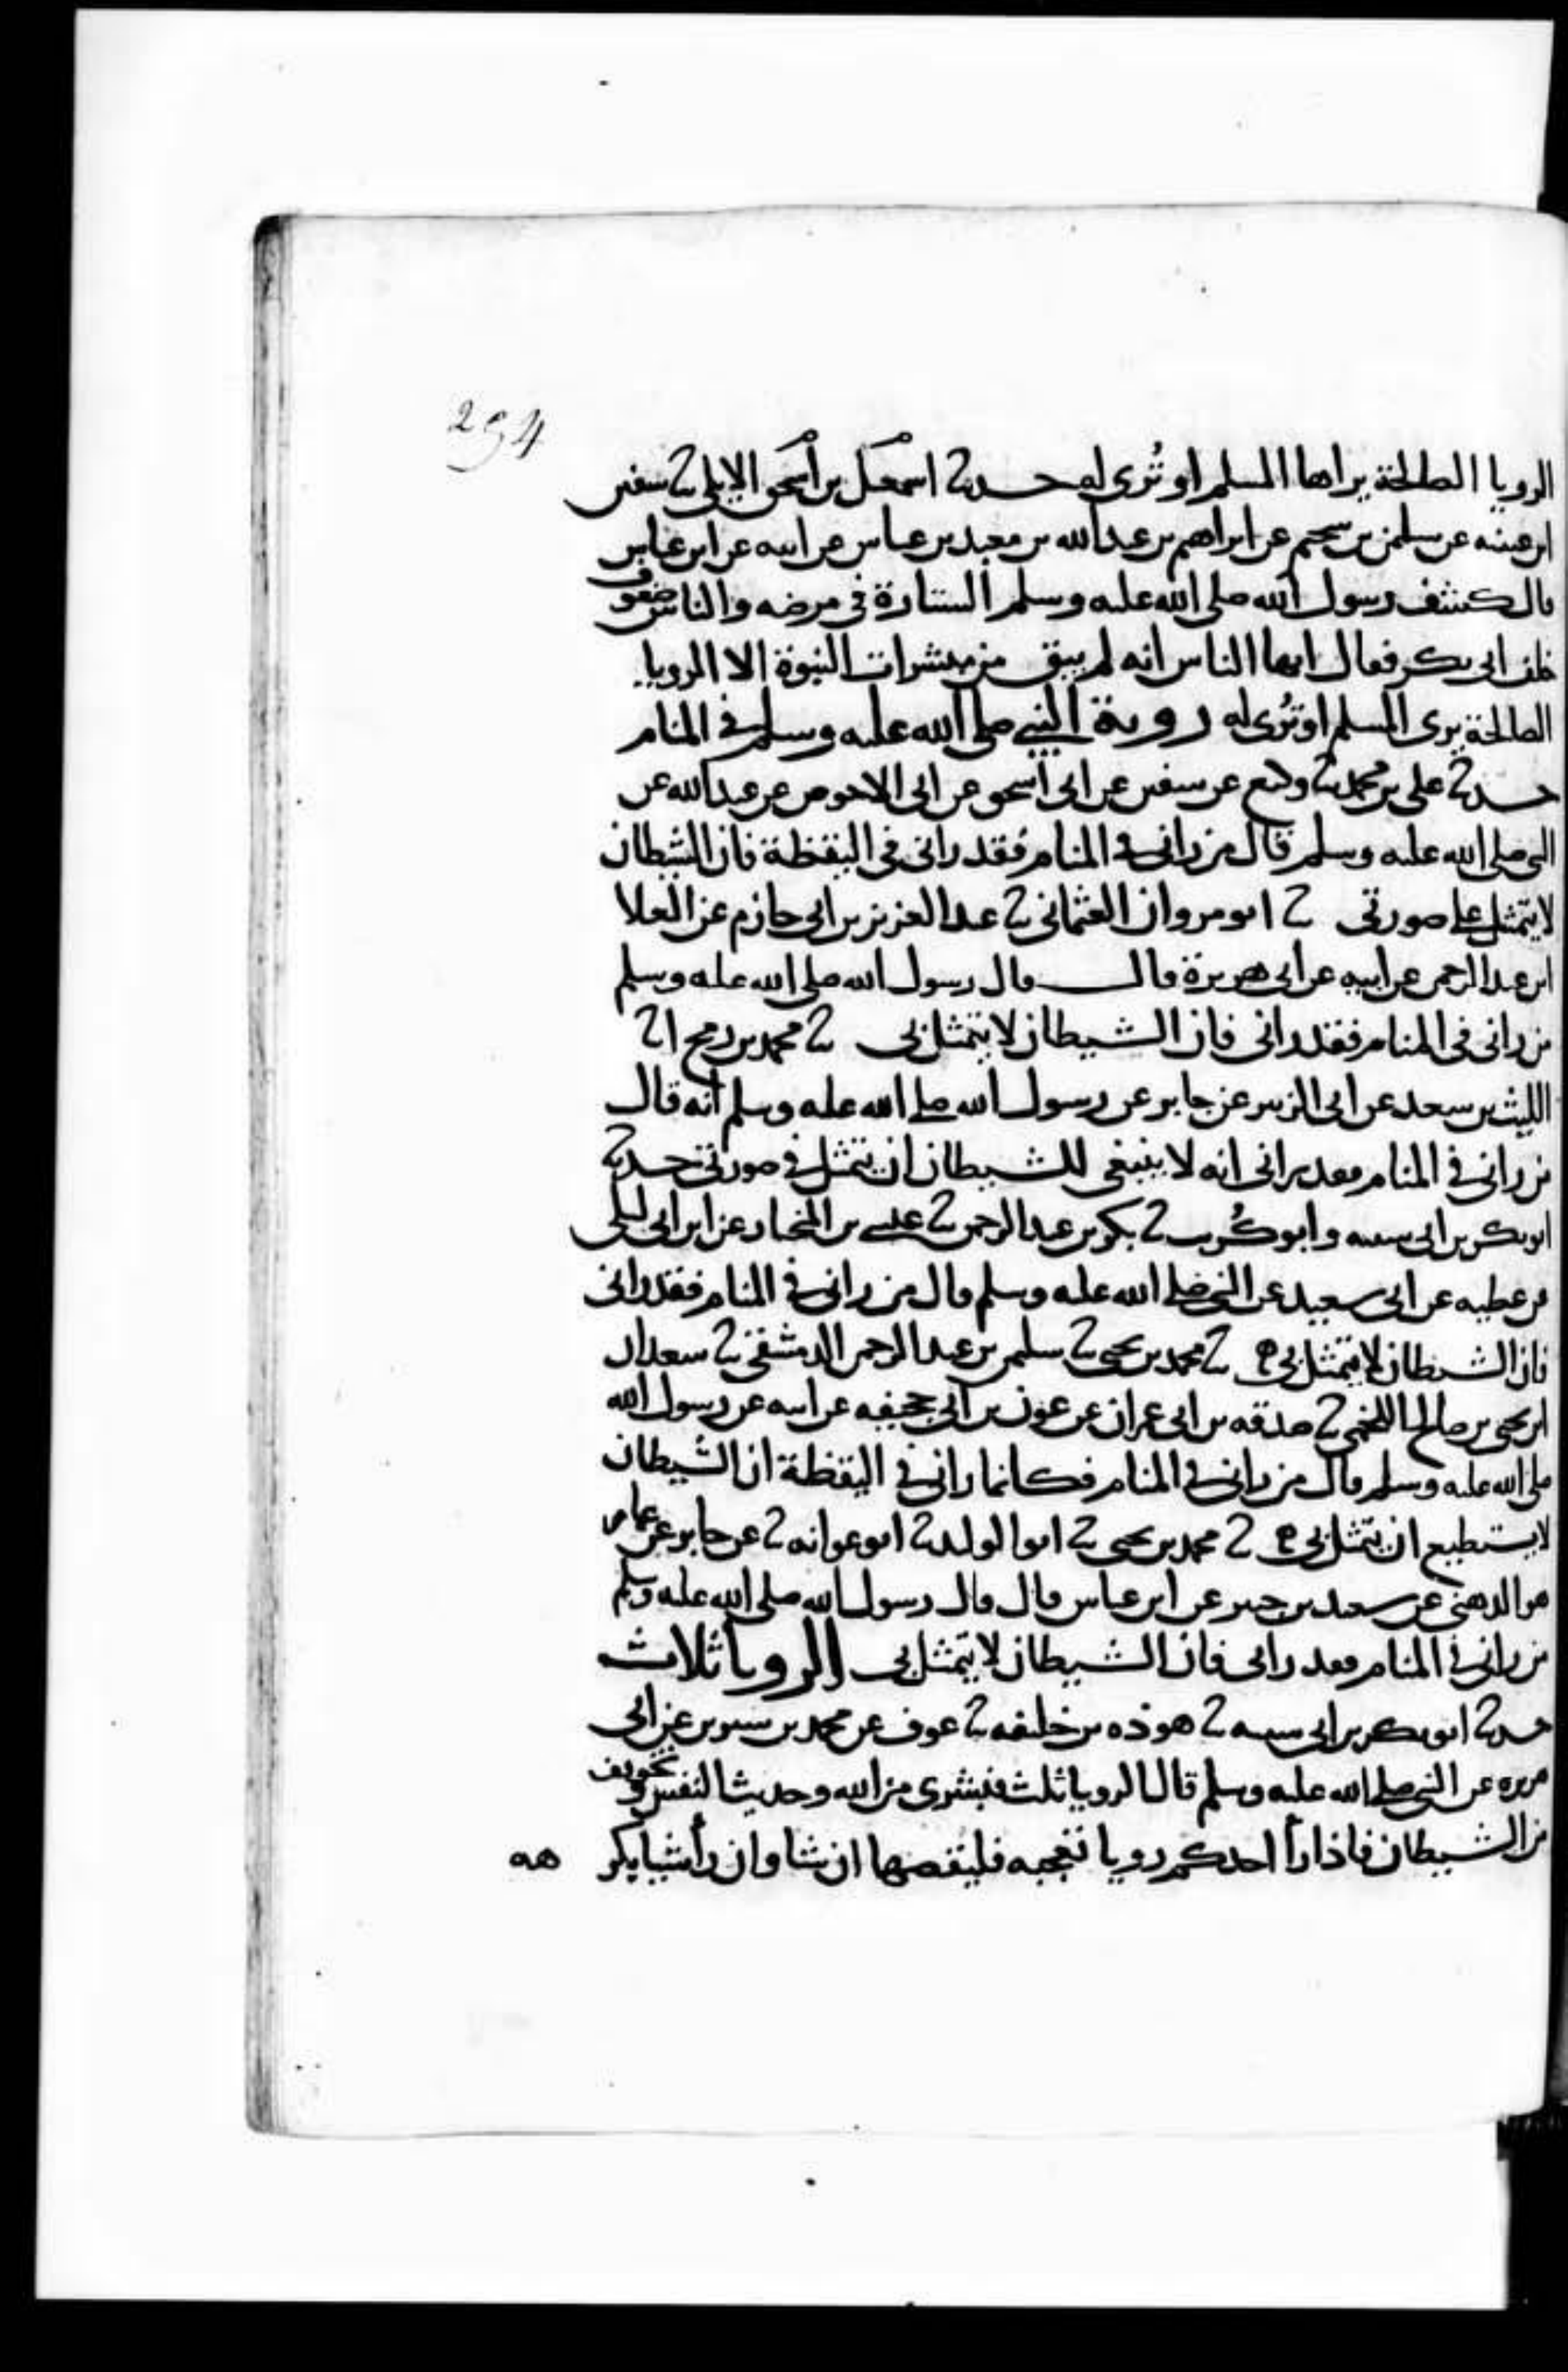 294
الرويا الصالحة يراها المسلم او تُرى له حدثا اسمعيل بن اسحق الايلي ثا سفين
ابن عيينه عن سليمن بن سحيم عن ابراهيم بن عبد الله بن معبد بن عباس عن ابيه عن ابن عباس
قال كشف رسول الله صلى الله عليه وسلم الستارة في مرضه والناس صفوف
خلف ابي بكر فقال ايها الناس انه لم يبق من مبشرات النبوة الا الرويا
الصالحة يرى المسلم او تُرى له روية النبي صلى الله عليه وسلم في المنام
حدثا علي بن محمد ثا وكيع عن سفين عن ابي اسحق عن ابي الاحوص عن عبد الله عن
النبي صلى الله عليه وسلم قال من راني في المنام فقد راني في اليقظة فان الشيطان
لا يتمثل على صورتي ثا ابو مروان العثماني ثا عبد العزيز بن ابي حازم عن العلا
ابن عبد الرحمن عن ابيه عن ابي هريرة قال قال رسول الله صلى الله عليه وسلم
من راني في المنام فقد راني فان الشيطان لا يتمثل بي ثا محمد بن رمح انا
الليث بن سعد عن ابي الزبير عن جابر عن رسول الله صلى الله عليه وسلم انه قال
من راني في المنام فقد راني انه لا ينبغي للشيطان ان يتمثل في صورتي حدثا
ابو بكر بن ابي شيبه وابو كُريب ثا بكر بن عبد الرحمن ثا عيسى بن المختار عن ابن ابي ليلى
عن عطيه عن ابي سعيد عن النبي صلى الله عليه وسلم قال من راني في المنام فقد راني
فان الشيطان لا يتمثل بي ثا محمد بن يحيى ثا سليمن بن عبد الرحمن الدمشقي ثا سعدان
ابن يحيى بن صالح اللخمي ثا صدقه بن ابي عمران عن عون بن ابي جحيفه عن ابيه عن رسول الله
صلى الله عليه وسلم قال من راني في المنام فكانما راني في اليقظة ان الشيطان
لا يستطيع ان يتمثل بي ثا محمد بن يحيى ثا ابو الوليد ثا ابو عوانه ثا عن جابر عن عمار
هو الدهني عن سعيد بن جبير عن ابن عباس قال قال رسول الله صلى الله عليه وسلم
من راني في المنام فقد راني فان الشيطان لا يتمثل بي الرويا ثلاث
حدثا ابو بكر بن ابي شيبه ثا هوذه بن خليفه ثا عوف عن محمد بن سيرين عن ابي
هريره عن النبي صلى الله عليه وسلم قال الرويا ثلث فبشرى من الله وحديث النفس وتخويف
من الشيطان فاذا رأا احدكم رويا تعجبه فليقصها ان شا وان رأ شيا يكر هه